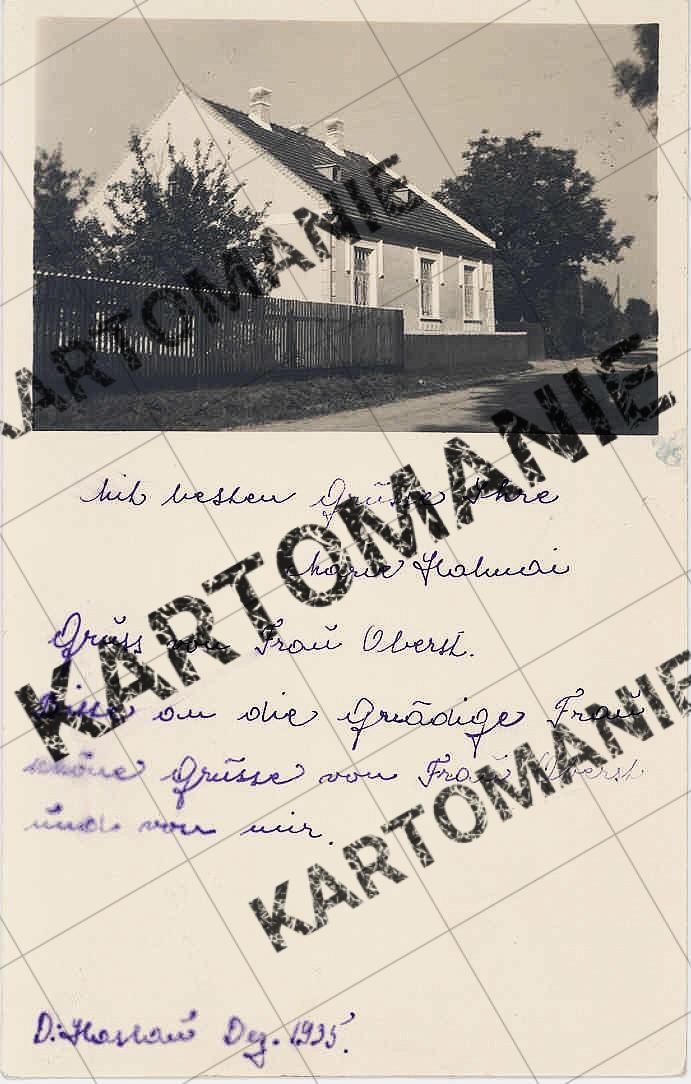 Mit besten Grüsse Ihre
Marie Halmai
Grüss von Frau Oberst.
Bitte an die gnädige Frau
schöne Grüsse von Frau Oberst
und von mir.
D. Haslau Dez. 1935.
KARTOMANIE
KARTOMANIE
KARTOMANIE